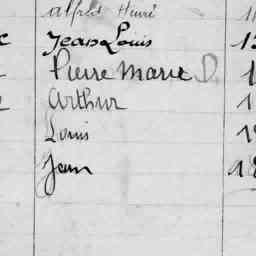 Alfred Henri
Jean Louis
Pierre Marie D
Arthur
Louis
Jean